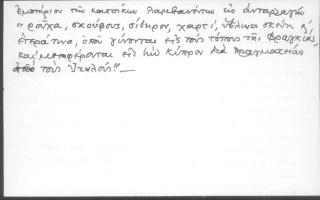 Ἐμπόριον τῶν κατοίκων λαμβανόντων εἰς ἀνταλλαγὴν
"ροῦχα, σκούφους, σίδηρον, χαρτί, ὑάλινα σκεύη κ'
ἕτερά τινα, ὁποῦ γίνονται εἰς τοὺς τόπους τῆς Φραγκίας,
καὶ μεταφέρονται εἰς τὴν Κύπρον διὰ πραγματείας
ἀπὸ τοὺς